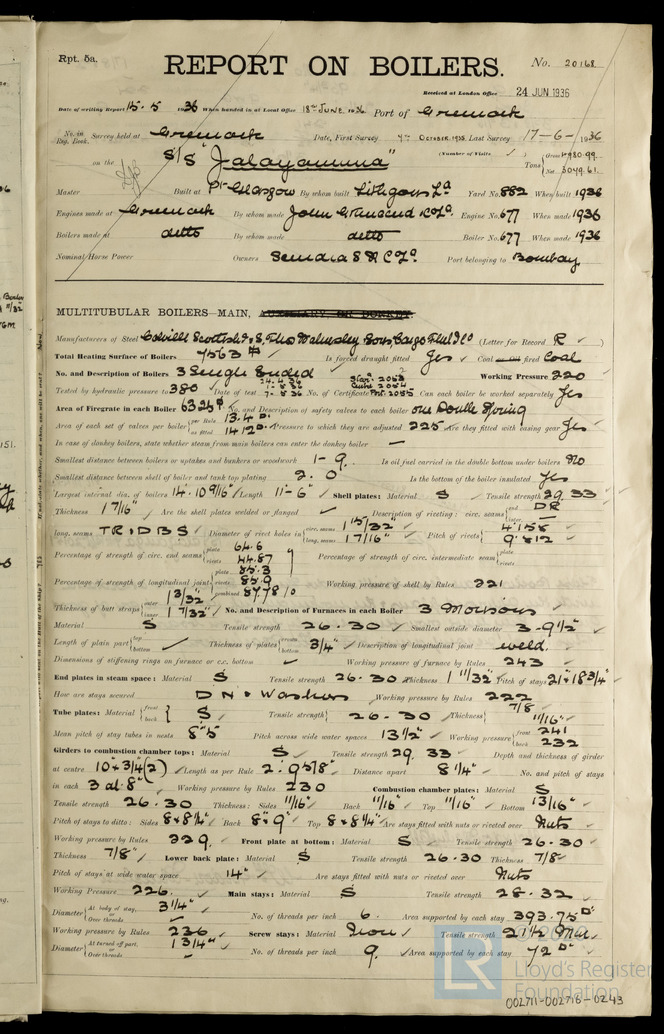 Rpt. 5a.
REPORT ON BOILERS.
No. 20168
Received at London Office 24 JUN 1936
Date of writing Report 15. 5 1936 When handed in at Local Office 18TH JUNE 1936 Port of Greenock
No. in Reg. Book. Survey held at Greenock Date, First Survey 4TH OCTOBER 1935 Last Survey 17-6-1936
on the S/S "Jalayamuna" (Number of Visits ) Tons Gross 4980.99 Net 3049.61
Master Built at Pt Glasgow By whom built Lithgows Ld Yard No. 882 When built 1936
Engines made at Greenock By whom made John G. Kincaid & Co Ld. Engine No. 677 When made 1936
Boilers made at ditto By whom made ditto Boiler No. 677 When made 1936
Nominal Horse Power Owners Scindia S N Co Ld Port belonging to Bombay
MULTITUBULAR BOILERS—MAIN, AUXILIARY OR DONKEY
Manufacturers of Steel Colvilles, Scottish I & S, Thos Walmsley & Sons, (Letter for Record R )
Total Heating Surface of Boilers 7563 Is forced draught fitted Yes Coal or oil fired Coal
No. and Description of Boilers 3 Single Ended Working Pressure 220
Tested by hydraulic pressure to 380 Date of test 24. 4. 36 7. 5. 36 No. of Certificate Star. 2053 Cntr. 2054 Port 2055 Can each boiler be worked separately Yes
Area of Firegrate in each Boiler 63.25 No. and Description of safety valves to each boiler one Double Spring
Area of each set of valves per boiler per Rule 13.4 as fitted 14.12 Pressure to which they are adjusted 225 Are they fitted with easing gear Yes
In case of donkey boilers, state whether steam from main boilers can enter the donkey boiler —
Smallest distance between boilers or uptakes and bunkers or woodwork 1-9 Is oil fuel carried in the double bottom under boilers No
Smallest distance between shell of boiler and tank top plating 2. 0 Is the bottom of the boiler insulated Yes
Largest internal dia. of boilers 14-10 9/16" Length 11'-6" Shell plates: Material S Tensile strength 29. 33
Thickness 1 7/16" Are the shell plates welded or flanged Description of riveting: circ. seams end DR inter. —
long. seams TR.DBS Diameter of rivet holes in circ. seams 1 15/32" long. seams 1 7/16" Pitch of rivets 4.158 9.812
Percentage of strength of circ. end seams plate 64.6 rivets 44.87 Percentage of strength of circ. intermediate seam plate rivets
Percentage of strength of longitudinal joint plate 85.3 rivets 85.9 combined 87.78 Working pressure of shell by Rules 221
Thickness of butt straps outer 1 3/32" inner 1 7/32" No. and Description of Furnaces in each Boiler 3 Morisons
Material S Tensile strength 26. 30 Smallest outside diameter 3-9 1/2"
Length of plain part top bottom Thickness of plates crown bottom 3/4" Description of longitudinal joint weld.
Dimensions of stiffening rings on furnace or c.c. bottom Working pressure of furnace by Rules 243
End plates in steam space: Material S Tensile strength 26. 30 Thickness 1 11/32" Pitch of stays 21 x 18 3/4"
How are stays secured DN & Washers Working pressure by Rules 222
Tube plates: Material front back S Tensile strength 26. 30 Thickness 7/8 11/16"
Mean pitch of stay tubes in nests 8.5 Pitch across wide water spaces 13 1/2" Working pressure front 241 back 232
Girders to combustion chamber tops: Material S Tensile strength 29. 33 Depth and thickness of girder
at centre 10 x 3/4 (2) Length as per Rule 2. 9 5/8" Distance apart 8 1/4" No. and pitch of stays
in each 3 at 8" Working pressure by Rules 230 Combustion chamber plates: Material S
Tensile strength 26. 30 Thickness: Sides 11/16" Back 11/16" Top 11/16" Bottom 13/16"
Pitch of stays to ditto: Sides 8 x 8 1/4" Back 8 x 9" Top 8 x 8 1/4" Are stays fitted with nuts or riveted over Nuts
Working pressure by Rules 229. Front plate at bottom: Material S Tensile strength 26.30
Thickness 7/8" Lower back plate: Material S Tensile strength 26.30 Thickness 7/8"
Pitch of stays at wide water space 14" Are stays fitted with nuts or riveted over Nuts
Working Pressure 226. Main stays: Material S Tensile strength 28.32
Diameter At body of stay, or Over threads 3 1/4" No. of threads per inch 6. Area supported by each stay 393.75
Working pressure by Rules 236 Screw stays: Material Iron Tensile strength 21 1/2 Min
Diameter At turned off part, or Over threads 1 3/4" No. of threads per inch 9. Area supported by each stay 72
© 2019
LR Lloyd's Register
Foundation
002711-002716-0243